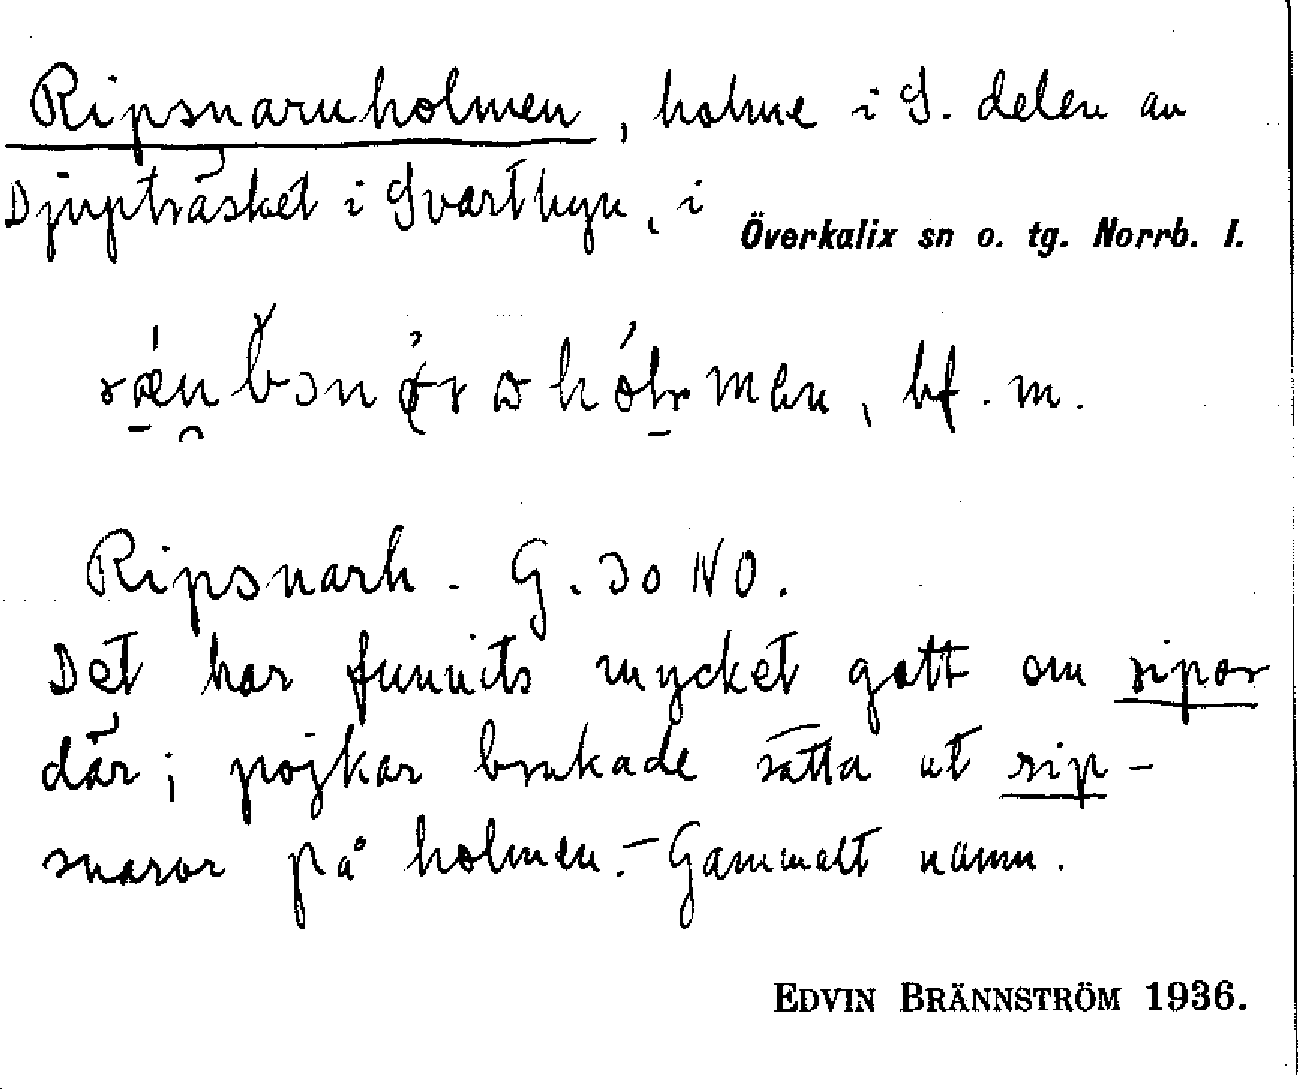 Ripsnaruholmen, holme i S. delen av
Djupträsket i Svartbyn, i
Överkalix sn o. tg. Norrb. l.
bf. m.
Ripsnarh. G. 30 NO.
Det har funnits mycket gott om ripor
där; pojkar brukade sätta ut rip-
snaror på holmen. – Gammalt namn.
EDVIN BRÄNNSTRÖM 1936.